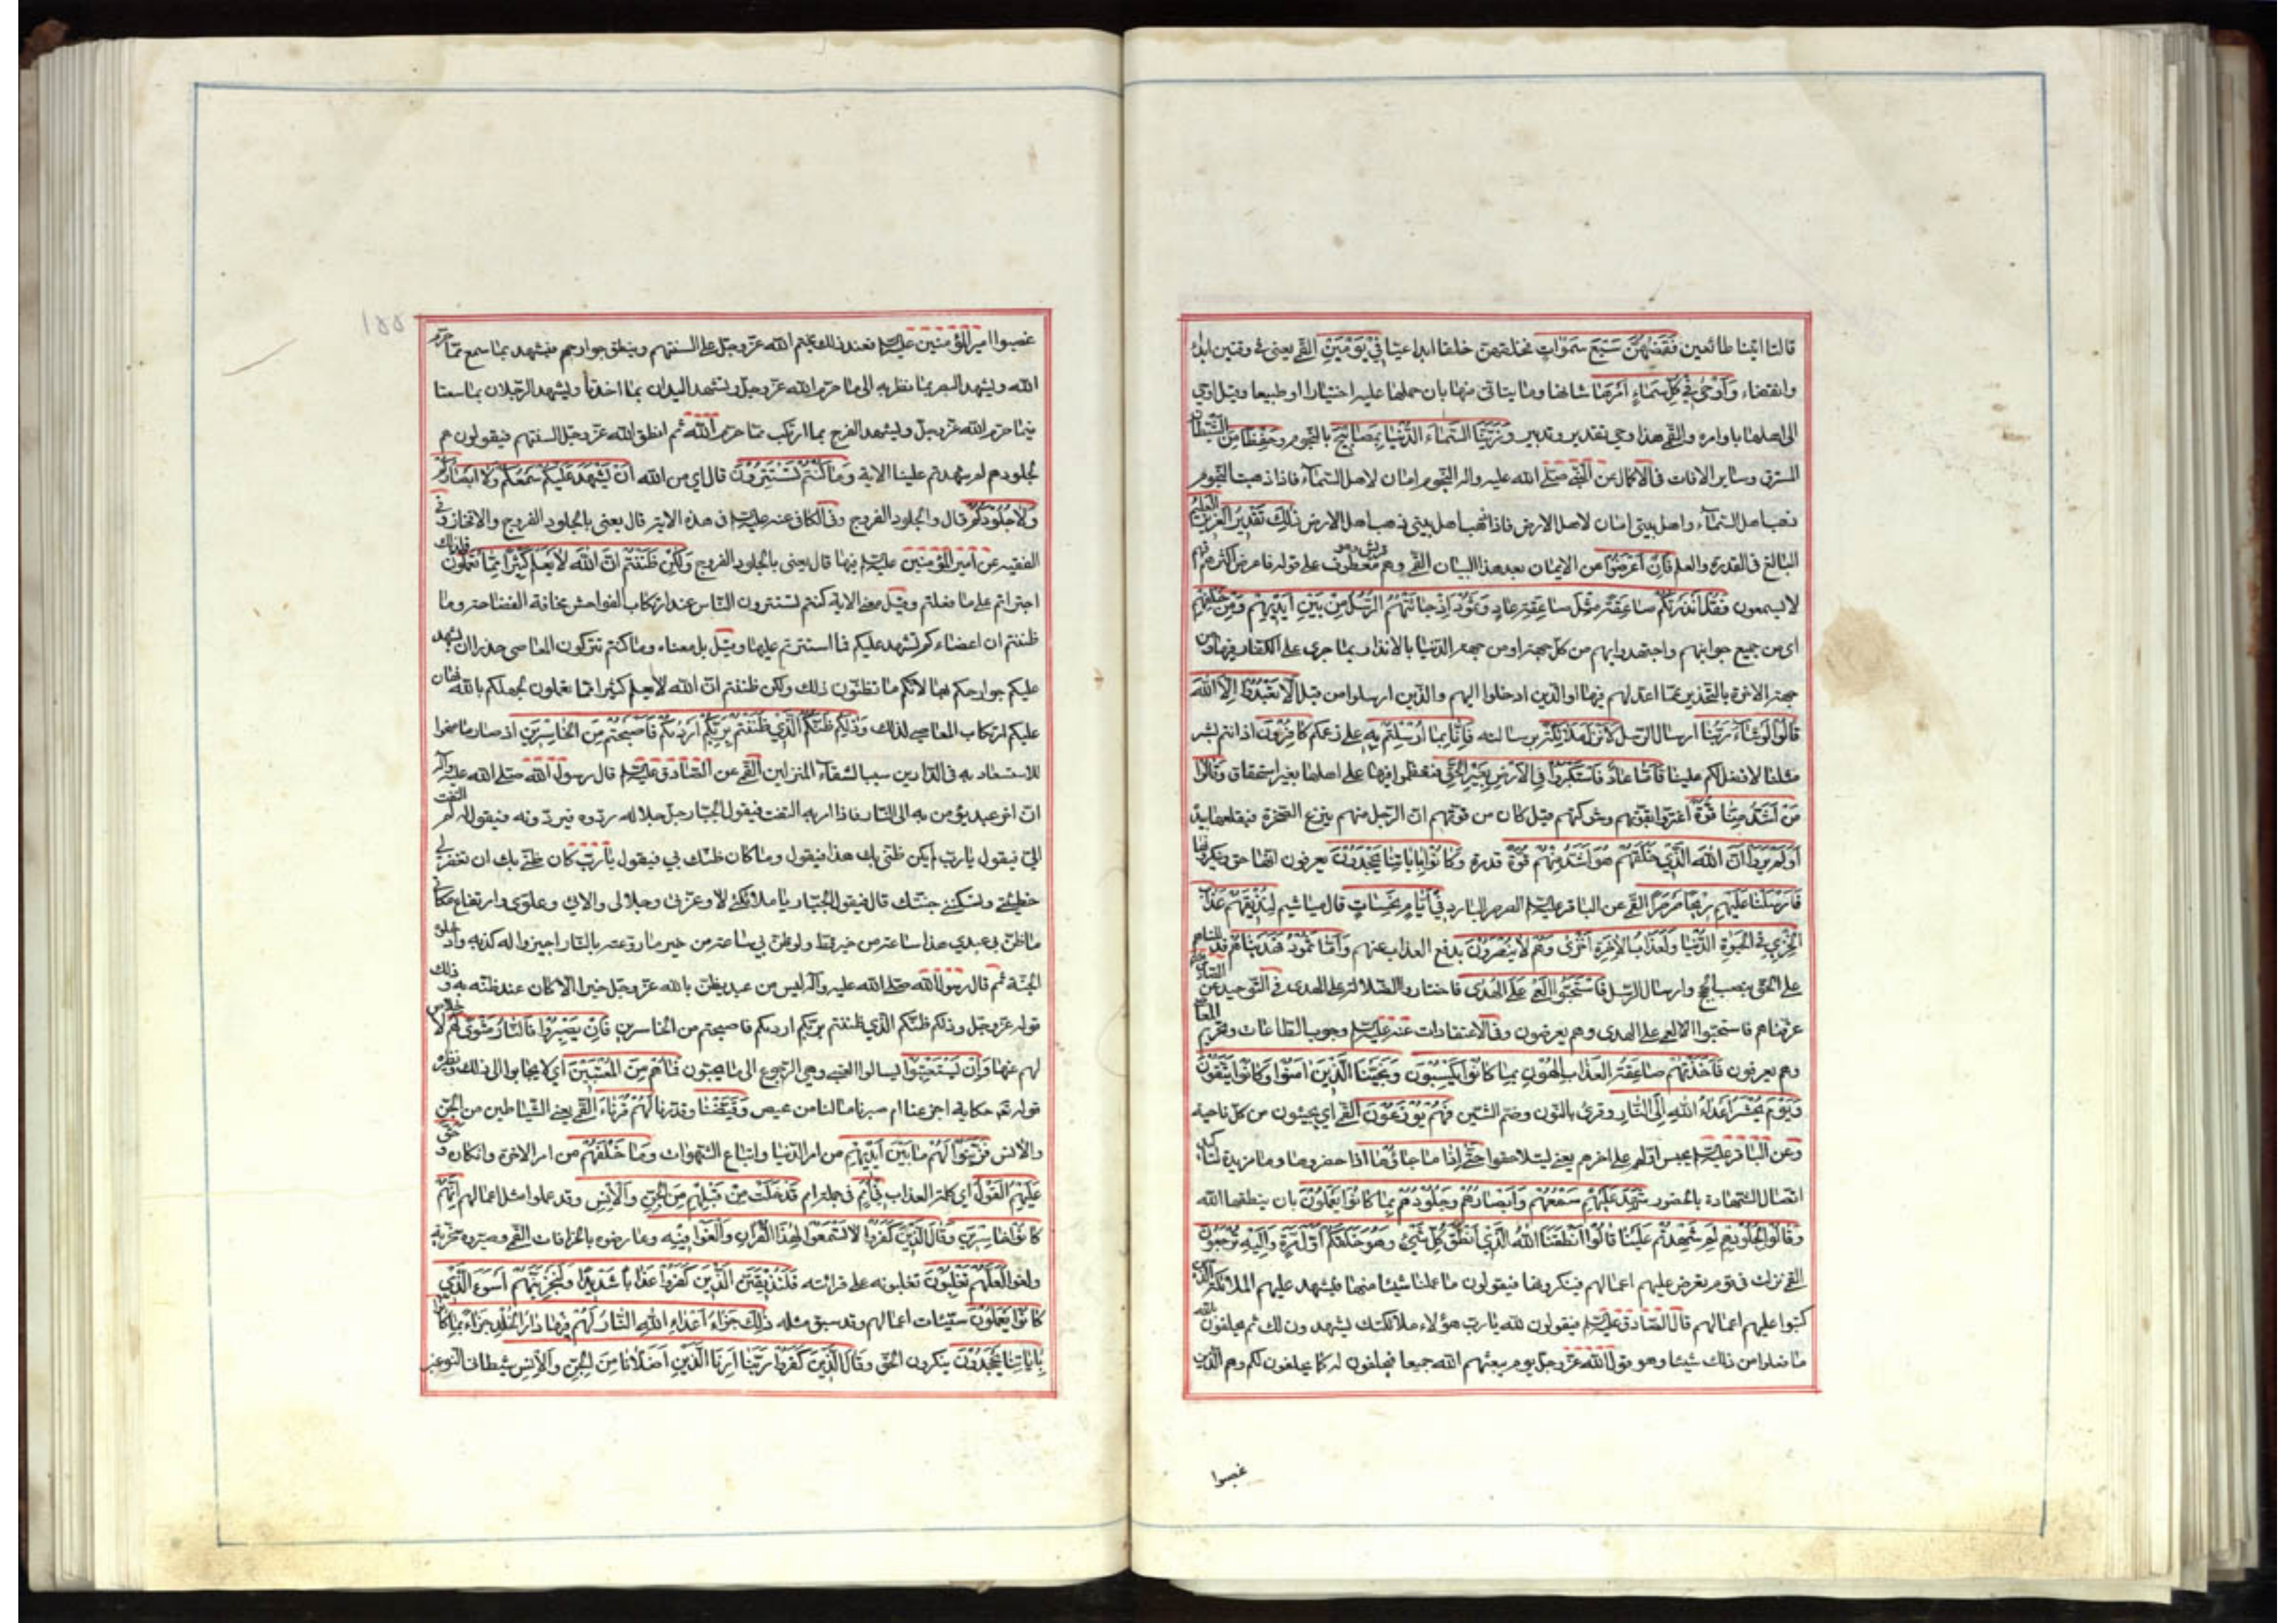 قالتا اتينا طائعين فَقَضٰهُنَّ سَبْعَ سَمٰوَاتٍ فخلقهن خلقا ابداعيا فِي يَوْمَيْنِ القمي يعني في وقتين ابداء
وانقضاء وَأَوْحٰى فِي كُلِّ سَمَاءٍ أَمْرَهَا شانها وما يتاتى منها بان حملها عليه اختيارا او طبعا وقيل اوحى
الى اهلها باوامره والقمي هذا وحي تقدير وتدبير وَزَيَّنَّا السَّمَاءَ الدُّنْيَا بِمَصَابِيحَ بالنجوم وَحِفْظًا من الشيطان
المسترق وساير الافات في الاكمال عن النبي صلى الله عليه واله النجوم امان لاهل السماء فاذا ذهبت النجوم
ذهب اهل السماء واهل بيتي امان لاهل الارض فاذا ذهب اهل بيتي ذهب اهل الارض ذٰلِكَ تَقْدِيرُ الْعَزِيزِ الْعَلِيمِ
البالغ في القدرة والعلم فَإِنْ أَعْرَضُوا عن الايمان بعد هذا البيان القمي وهم قريش وهو معطوف على قوله فاعرض اكثرهم فهم
لا يسمعون فَقُلْ أَنْذَرْتُكُمْ صَاعِقَةً مِثْلَ صَاعِقَةِ عَادٍ وَثَمُودَ إِذْ جَائَتْهُمُ الرُّسُلُ مِنْ بَيْنِ أَيْدِيهِمْ وَمِنْ خَلْفِهِمْ
اي من جميع جوانبهم واجتهدوا بهم من كل جهة او من جهة الدنيا بالانذار بما جرى على الكفار فيها ومن
جهة الاخرة بالتحذير عما اعد لهم فيها او الذين ادخلوا اليهم والذين ارسلوا من قبل أَلَّا تَعْبُدُوا إِلَّا اللهَ
قَالُوا لَوْ شَاءَ رَبُّنَا ارسال الرسل لَأَنْزَلَ مَلَائِكَةً برسالته فَإِنَّا بِمَا أُرْسِلْتُمْ بِهِ على زعمكم كَافِرُونَ اذ انتم بشر
مثلنا لا فضل لكم علينا فَأَمَّا عَادٌ فَاسْتَكْبَرُوا فِي الْأَرْضِ بِغَيْرِ الْحَقِّ فتعظموا فيها على اهلها بغير استحقاق وَقَالُوا
مَنْ أَشَدُّ مِنَّا قُوَّةً اغتروا بقوتهم وشوكتهم قيل كان من قوتهم ان الرجل منهم ينزع الصخرة فيقلعها بيده
أَوَلَمْ يَرَوْا أَنَّ اللهَ الَّذِي خَلَقَهُمْ هُوَ أَشَدُّ مِنْهُمْ قُوَّةً قدرة وَكَانُوا بِآيَاتِنَا يَجْحَدُونَ يعرفون انها حق وينكرونها
فَأَرْسَلْنَا عَلَيْهِمْ رِيحًا صَرْصَرًا القمي عن الباقر عليه السلم الصرصر البارد فِي أَيَّامٍ نَحِسَاتٍ قال مياشيم لِنُذِيقَهُمْ عَذَابَ
الْخِزْيِ فِي الْحَيٰوةِ الدُّنْيَا وَلَعَذَابُ الْآخِرَةِ أَخْزَى وَهُمْ لَا يُنْصَرُونَ بدفع العذاب عنهم وَأَمَّا ثَمُودُ فَهَدَيْنَاهُمْ فدللناهم
على الحق بنصب الحجج وارسال الرسل فَاسْتَحَبُّوا الْعَمٰى عَلَى الْهُدٰى فاختاروا الضلالة على الهدى في التوحيد عن الصادق عليه السلم
عرفناهم فاستحبوا العمى على الهدى وهم يعرفون وفي الاعتقادات عنه عليه السلم وجوب الطاعات وتحريم المعاصي
وهم يعرفون فَأَخَذَتْهُمْ صَاعِقَةُ الْعَذَابِ الْهُونِ بِمَا كَانُوا يَكْسِبُونَ وَنَجَّيْنَا الَّذِينَ آمَنُوا وَكَانُوا يَتَّقُونَ
وَيَوْمَ يُحْشَرُ أَعْدَاءُ اللهِ إِلَى النَّارِ وقرئ بالنون وضم الشين فَهُمْ يُوزَعُونَ القمي اي يجيئون من كل ناحية
وعن الباقر عليه السلم يحبس اولهم على اخرهم يعني ليتلاحقوا حَتّٰى إِذَا مَا جَاؤُهَا اذا حضروها وما مزيدة لتاكيد
اتصال الشهادة بالحضور شَهِدَ عَلَيْهِمْ سَمْعُهُمْ وَأَبْصَارُهُمْ وَجُلُودُهُمْ بِمَا كَانُوا يَعْمَلُونَ بان ينطقها الله
وَقَالُوا لِجُلُودِهِمْ لِمَ شَهِدْتُمْ عَلَيْنَا قَالُوا أَنْطَقَنَا اللهُ الَّذِي أَنْطَقَ كُلَّ شَيْءٍ وَهُوَ خَلَقَكُمْ أَوَّلَ مَرَّةٍ وَإِلَيْهِ تُرْجَعُونَ
القمي نزلت في قوم يعرض عليهم اعمالهم فينكرونها فيقولون ما عملنا شيئا منها فيشهد عليهم الملائكة الذين
كتبوا عليهم اعمالهم قال الصادق عليه السلم فيقولون لله يا رب هؤلاء ملائكتك يشهدون لك ثم يحلفون بالله
ما فعلوا من ذلك شيئا وهو قول الله عز وجل يوم يبعثهم الله جميعا فيحلفون له كما يحلفون لكم وهم الذين
غصبوا
١٥٥
غصبوا امير المؤمنين عليه السلم فعند ذلك يختم الله عز وجل على السنتهم وينطق جوارحهم فيشهد بما سمع مما حرم
الله ويشهد البصر بما نظر به الى ما حرم الله عز وجل وتشهد اليدان بما اخذتا ويشهد الرجلان بما سعتا
فيما حرم الله عز وجل ويشهد الفرج بما ارتكب مما حرم الله ثم انطق الله عز وجل السنتهم فيقولون هم
لجلودهم لم شهدتم علينا الاية وَمَا كُنْتُمْ تَسْتَتِرُونَ قال اي من الله أَنْ يَشْهَدَ عَلَيْكُمْ سَمْعُكُمْ وَلَا أَبْصَارُكُمْ
وَلَا جُلُودُكُمْ قال والجلود الفروج وفي الكافي عنه عليه السلم في هذه الاية قال يعني بالجلود الفروج والافخاذ وفي
الفقيه عن امير المؤمنين عليه السلم فيها قال يعني بالجلود الفروج وَلٰكِنْ ظَنَنْتُمْ أَنَّ اللهَ لَا يَعْلَمُ كَثِيرًا مِمَّا تَعْمَلُونَ فلذلك
اجتراتم على ما فعلتم وقيل معنى الاية كنتم تستترون الناس عند ارتكاب الفواحش مخافة الفضاحة وما
ظننتم ان اعضاءكم تشهد عليكم فما استترتم عليها وقيل بل معناه وما كنتم تتركون المعاصي حذرا ان يشهد
عليكم جوارحكم بها لانكم ما تظنون ذلك ولكن ظننتم ان الله لا يعلم كثيرا مما تعملون لجهلكم بالله فهان
عليكم ارتكاب المعاصي لذلك وَذٰلِكُمْ ظَنُّكُمُ الَّذِي ظَنَنْتُمْ بِرَبِّكُمْ أَرْدٰيكُمْ فَأَصْبَحْتُمْ مِنَ الْخَاسِرِينَ اذ صار ما منحوا
للاستسعاد به في الدارين سببا لشقاء المنزلين القمي عن الصادق عليه السلم قال رسول الله صلى الله عليه وآله
ان اخر عبد يؤمر به الى النار فاذا امر به التفت فيقول الجبار جل جلاله ردوه فيردونه فيقول له لم التفت
الي فيقول يا رب لم يكن ظني بك هذا فيقول وما كان ظنك بي فيقول يا رب كان ظني بك ان تغفر لي
خطيئتي وتسكنني جنتك قال فيقول الجبار يا ملائكتي لا وعزتي وجلالي والائي وعلوي وارتفاع مكاني
ما ظن بي عبدي هذا ساعة من خير قط ولو ظن بي ساعة من خير ما روعته بالنار اجيزوا له كذبه وادخلوه
الجنة ثم قال رسول الله صلى الله عليه وآله ليس من عبد يظن بالله عز وجل خيرا الا كان عند ظنه به وذلك
قوله عز وجل وذلكم ظنكم الذي ظننتم بربكم اردىكم فاصبحتم من الخاسرين فَإِنْ يَصْبِرُوا فَالنَّارُ مَثْوًى لَهُمْ لا خلاص
لهم عنها وَإِنْ يَسْتَعْتِبُوا يسالوا العتبى وهي الرجوع الى ما يحبون فَمَا هُمْ مِنَ الْمُعْتَبِينَ اي لا يجابوا الى ذلك ونظيره
قوله تع حكاية اجزعنا ام صبرنا ما لنا من محيص وَقَيَّضْنَا وقدرنا لَهُمْ قُرَنَاءَ القمي يعني الشياطين من الجن
والانس فَزَيَّنُوا لَهُمْ مَا بَيْنَ أَيْدِيهِمْ من امر الدنيا واتباع الشهوات وَمَا خَلْفَهُمْ من امر الاخرة وانكاره وَحَقَّ
عَلَيْهِمُ الْقَوْلُ اي كلمة العذاب فِي أُمَمٍ في جملة امم قَدْ خَلَتْ مِنْ قَبْلِهِمْ مِنَ الْجِنِّ وَالْإِنْسِ وقد عملوا مثل اعمالهم إِنَّهُمْ
كَانُوا خَاسِرِينَ وَقَالَ الَّذِينَ كَفَرُوا لَا تَسْمَعُوا لِهٰذَا الْقُرْآنِ وَالْغَوْا فِيهِ وعارضوه بالخرافات القمي وصيروه سخرية
ولغوا لَعَلَّكُمْ تَغْلِبُونَ تغلبونه على قرائته فَلَنُذِيقَنَّ الَّذِينَ كَفَرُوا عَذَابًا شَدِيدًا وَلَنَجْزِيَنَّهُمْ أَسْوَءَ الَّذِي
كَانُوا يَعْمَلُونَ سيئات اعمالهم وقد سبق مثله ذٰلِكَ جَزَاءُ أَعْدَاءِ اللهِ النَّارُ لَهُمْ فِيهَا دَارُ الْخُلْدِ جَزَاءً بِمَا كَانُوا
بِآيَاتِنَا يَجْحَدُونَ ينكرون الحق وَقَالَ الَّذِينَ كَفَرُوا رَبَّنَا أَرِنَا الَّذَيْنِ أَضَلَّانَا مِنَ الْجِنِّ وَالْإِنْسِ شيطاني النوعين